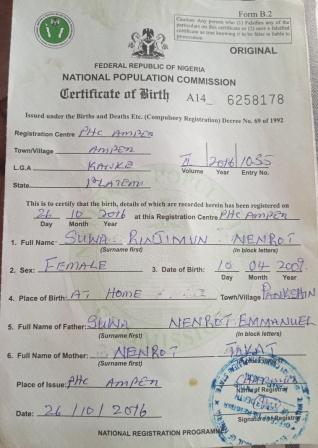 Form B.2
Caution: Any person who (1) Falsifies any of the
particulars on this certificate or (2) uses a falsified
certificate as true knowing it to be false is liable to
prosecution
ORIGINAL
FEDERAL REPUBLIC OF NIGERIA
NATIONAL POPULATION COMMISSION
Certificate of Birth A14_ 6258178
Issued under the Births and Deaths Etc. (Compulsory Registration) Decree No. 69 of 1992
Registration Centre PHC AMPER
Town/Village AMPER
L.G.A KANKE II 2016 1055
Volume Year Entry No.
State PLATEAU
This is to certify that the birth, details of which are recorded herein has been registered on
26 10 2016 at this Registration Centre PHC AMPER
Day Month Year
1. Full Name: SUWA RINJIMUN NENROT
(Surname first) (In block letters)
2. Sex: FEMALE 3. Date of Birth: 10 04 2009
Day Month Year
4. Place of Birth: AT HOME Town/Village PANKSHIN
5. Full Name of Father: SUWA NENROT EMMANUEL
(Surname first) (In block letters)
6. Full Name of Mother: NENROT TAKAT
(Surname first)
Place of Issue: PHC AMPER
Name of Registrar
Date: 26/10/2016
Signature of Registrar
NATIONAL REGISTRATION PROGRAMME